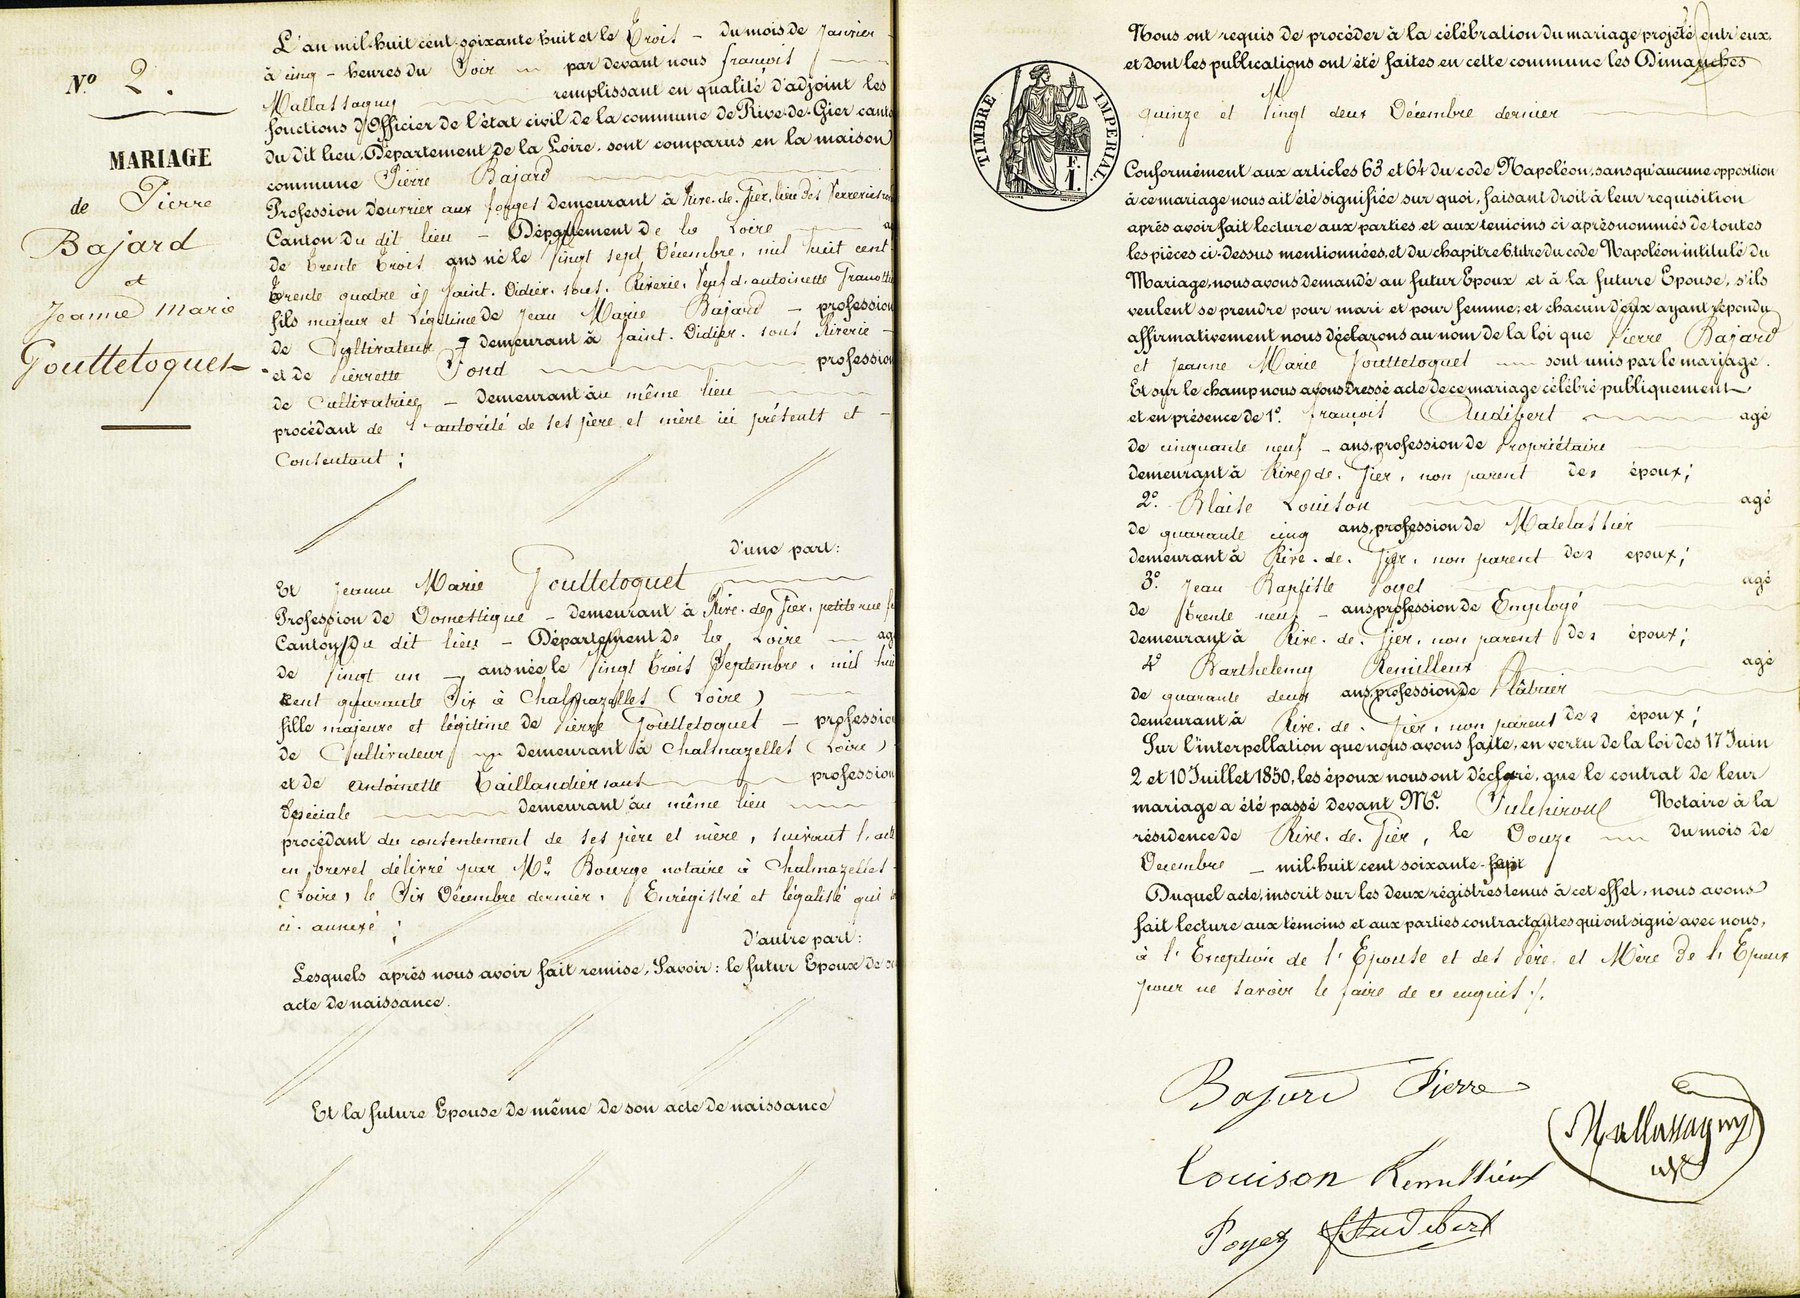 N° 2.
MARIAGE
de Pierre
Bajard
et
Jeanne Marie
Gouttetoquet
L'an mil-huit cent soixante huit et le Trois - du mois de Janvier
à cinq - heures du Soir par devant nous françois
Mallassagny remplissant en qualité d'adjoint les
fonctions d'Officier de l'état civil de la commune de Rive-de-Gier cant
du dit lieu, Département de la Loire, sont comparus en la maison
commune Pierre Bajard
Profession d'ouvrier aux forges demeurant à Rive-de-Gier, lieu des Verreries
Canton du dit lieu - Département de la Loire
de Trente Trois ans né le Vingt sept Décembre, mil huit cent
trente quatre à Saint-Didier-sous-Riverie, Veuf d'antoinette
fils majeur et légitime de Jean Marie Bajard - profession
de Cultivateur demeurant à Saint-Didier-sous Riverie -
et de Pierrette Fond profession
de Cultivatrice - demeurant au même lieu
procédant de l'autorité de ses père et mère ici présents et -
Consentant ;
d'une part:
Et Jeanne Marie Gouttetoquet
Profession de Domestique - demeurant à Rive-de-Gier, petite rue
Canton du dit lieu - Département de la Loire ag
de Vingt un - ans née le Vingt Trois Septembre, mil huit
cent quarante Six à Chalmazelles (Loire)
fille majeure et légitime de Pierre Gouttetoquet - profession
de Cultivateur demeurant à Chalmazelles (Loire)
et de Antoinette Taillandier sans profession
Spéciale demeurant au même lieu
procédant du consentement de ses père et mère, suivant l'acte
en brevet délivré par Me Bourge notaire à Chalmazelles -
(Loire) le Six Décembre dernier, Enrégistré et légalisé qui
ci-annexé ;
d'autre part:
Lesquels après nous avoir fait remise, Savoir: le futur Epoux de
acte de naissance.
Et la future Epouse de même de son acte de naissance
TIMBRE IMPÉRIAL
F.
1.
Nous ont requis de procéder à la célébration du mariage projeté entr'eux,
et dont les publications ont été faites en cette commune les Dimanches
quinze et Vingt deux Décembre dernier
Conformément aux articles 63 et 64 du code Napoléon, sans qu'aucune opposition
à ce mariage nous ait été signifiée sur quoi, faisant droit à leur requisition
après avoir fait lecture aux parties et aux temoins ci après nommés de toutes
les pièces ci-dessus mentionnées, et du chapitre 6, titre du code Napoléon intitulé du
Mariage, nous avons demandé au futur Epoux et à la future Epouse, s'ils
veulent se prendre pour mari et pour femme; et chacun d'eux ayant répondu
affirmativement nous déclarons au nom de la loi que Pierre Bajard
et Jeanne Marie Gouttetoquet sont unis par le mariage.
Et sur le champ nous avons dressé acte de ce mariage célébré publiquement
et en présence de 1° françois Audibert agé
de cinquante neuf - ans, profession de Propriétaire
demeurant à Rive-de-Gier, non parent des époux;
2° Blaise Louison agé
de quarante cinq ans, profession de Matelassier
demeurant à Rive-de-Gier, non parent des epoux;
3° Jean Baptiste Poyet agé
de Trente neuf - ans, profession de Employé
demeurant à Rive-de-Gier, non parent des époux;
4° Barthelemy Remilleux agé
de quarante deux ans, profession de Plâtrier
demeurant à Rive-de-Gier, non parent des époux;
Sur l'interpellation que nous avons faite, en vertu de la loi des 17 Juin
2 et 10 Juillet 1850, les époux nous ont déclaré, que le contrat de leur
mariage a été passé devant Me. Notaire à la
résidence de Rive-de-Gier, le Douze du mois de
Décembre - mil-huit cent soixante-sept
Duquel acte, inscrit sur les deux régistres tenus à cet effet, nous avons
fait lecture aux témoins et aux parties contractantes qui ont signé avec nous,
à l'Exception de l'Epouse et des Père et Mère de l'Epoux
pour ne savoir le faire de ce enquis ./.
Bajard Pierre
Mallassagny
adj
Louison Remillieux
Poyet Audibert